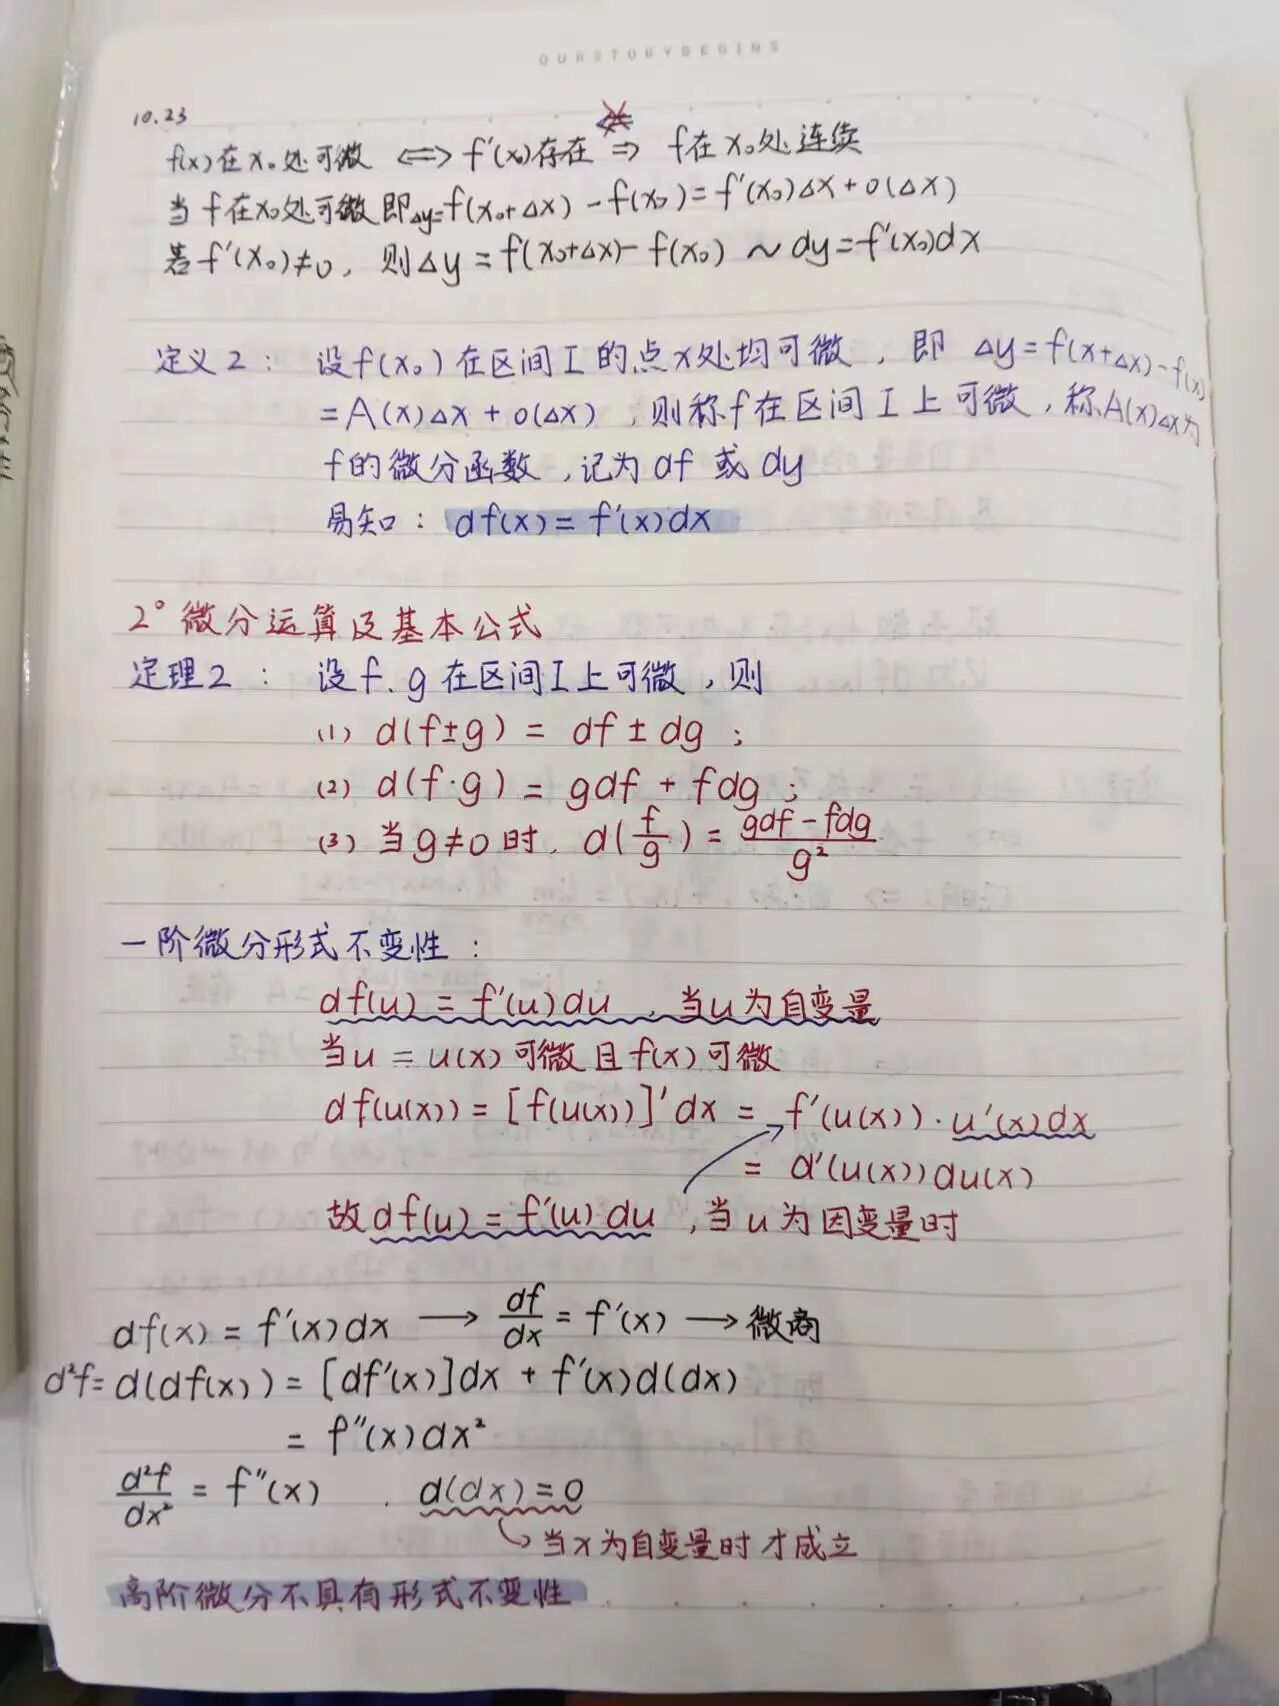 OURSTORYBEGINS
10.23
f(x)在x₀处可微 ⟺ f'(x₀)存在 ⇒ f在x₀处连续
当f在x₀处可微即Δy=f(x₀+Δx)-f(x₀)=f'(x₀)Δx+o(Δx)
若f'(x₀)≠0, 则Δy=f(x₀+Δx)-f(x₀) ~ dy=f'(x₀)dx
定义2: 设f(x₀)在区间I的点x处均可微, 即 Δy=f(x+Δx)-f(x)
=A(x)Δx+o(Δx), 则称f在区间I上可微, 称A(x)Δx为
f的微分函数, 记为df或dy
易知: df(x)=f'(x)dx
2°微分运算及基本公式
定理2: 设f、g在区间I上可微, 则
(1) d(f±g)=df±dg;
(2) d(f·g)=gdf+fdg;
(3) 当g≠0时, d(f/g)=(gdf-fdg)/g²
一阶微分形式不变性:
df(u)=f'(u)du, 当u为自变量
当u=u(x)可微且f(x)可微
df(u(x))=[f(u(x))]'dx=f'(u(x))·u'(x)dx
=d'(u(x))du(x)
故df(u)=f'(u)du, 当u为因变量时
df(x)=f'(x)dx → df/dx=f'(x) → 微商
d²f=d(df(x))=[df'(x)]dx+f'(x)d(dx)
=f''(x)dx²
d²f/dx²=f''(x), d(dx)=0
当x为自变量时才成立
高阶微分不具有形式不变性